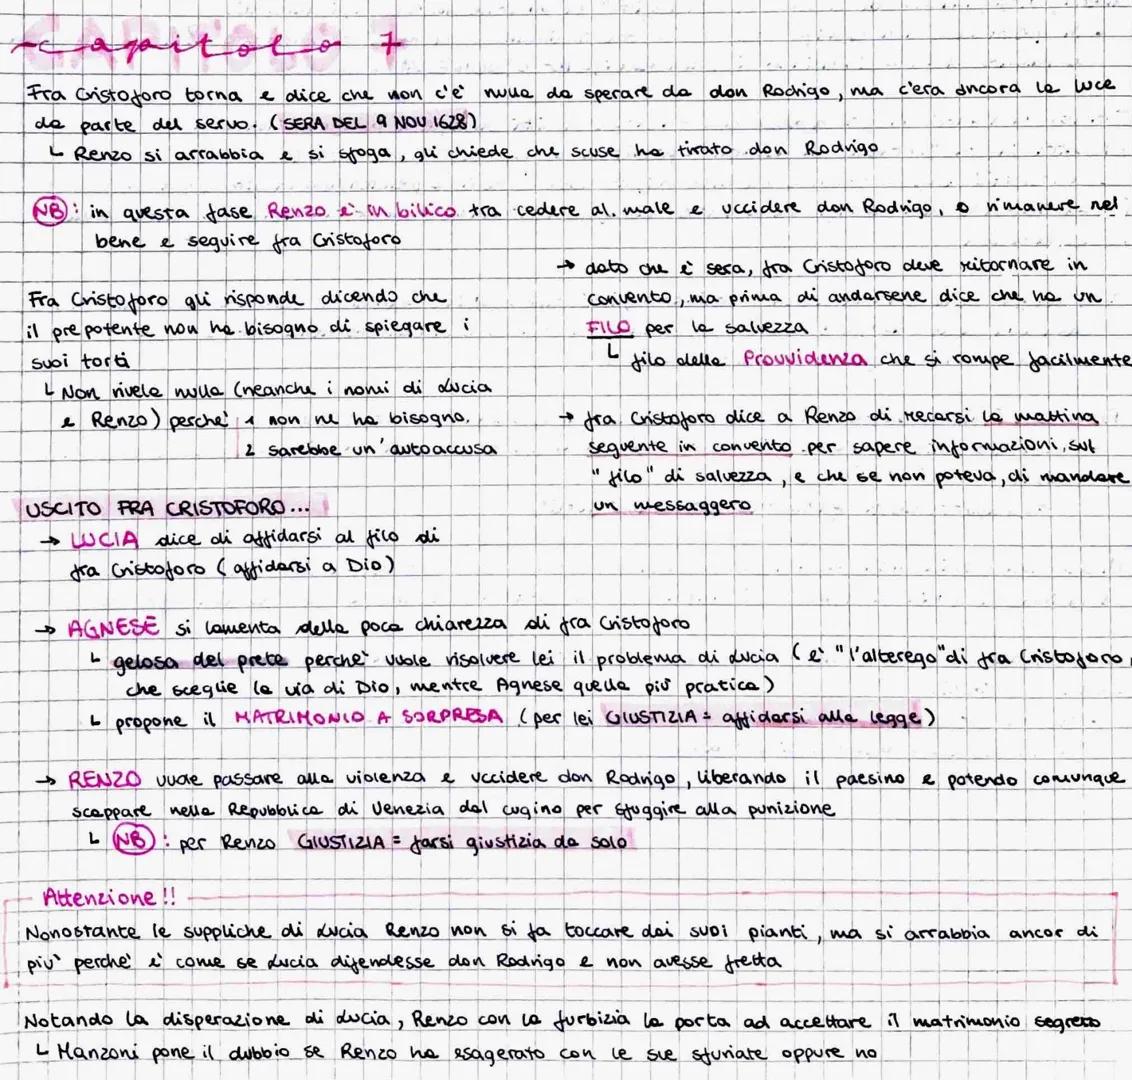 Capitolo 7
Fra Cristoforo torna e dice che non c'è nulla da sperare da don Rodrigo, ma c'era ancora la luce
da parte del servo. (SERA DEL 9 NOV 1628)
↳ Renzo si arrabbia e si sfoga, gli chiede che scuse ha tirato don Rodrigo
NB: in questa fase Renzo è in bilico tra cedere al male e uccidere don Rodrigo, o rimanere nel
bene e seguire fra Cristoforo
Fra Cristoforo gli risponde dicendo che
il prepotente non ha bisogno di spiegare i
suoi torti
↳ Non rivela nulla (neanche i nomi di Lucia
e Renzo) perché 1 non ne ha bisogno.
2 sarebbe un'autoaccusa
→ dato che è sera, fra Cristoforo deve ritornare in
convento, ma prima di andarsene dice che ha un
FILO per la salvezza
↳ filo della Provvidenza che si rompe facilmente
→ fra Cristoforo dice a Renzo di recarsi la mattina
seguente in convento per sapere informazioni sul
"filo" di salvezza, e che se non poteva, di mandare
un messaggero
USCITO FRA CRISTOFORO...
→ LUCIA dice di affidarsi al filo di
fra Cristoforo (affidarsi a Dio)
→ AGNESE si lamenta della poca chiarezza di fra Cristoforo
↳ gelosa del prete perché vuole risolvere lei il problema di Lucia (è "l'alterego" di fra Cristoforo,
che sceglie la via di Dio, mentre Agnese quella più pratica)
↳ propone il MATRIMONIO A SORPRESA (per lei GIUSTIZIA = affidarsi alla legge)
→ RENZO vuole passare alla violenza e uccidere don Rodrigo, liberando il paesino e potendo comunque
scappare nella Repubblica di Venezia dal cugino per sfuggire alla punizione
↳ NB: per Renzo GIUSTIZIA = farsi giustizia da solo
Attenzione!!
Nonostante le suppliche di Lucia Renzo non si fa toccare dai suoi pianti, ma si arrabbia ancor di
più perché è come se Lucia difendesse don Rodrigo e non avesse fretta
Notando la disperazione di Lucia, Renzo con la furbizia la porta ad accettare il matrimonio segreto
↳ Manzoni pone il dubbio se Renzo ha esagerato con le sue sfuriate oppure no